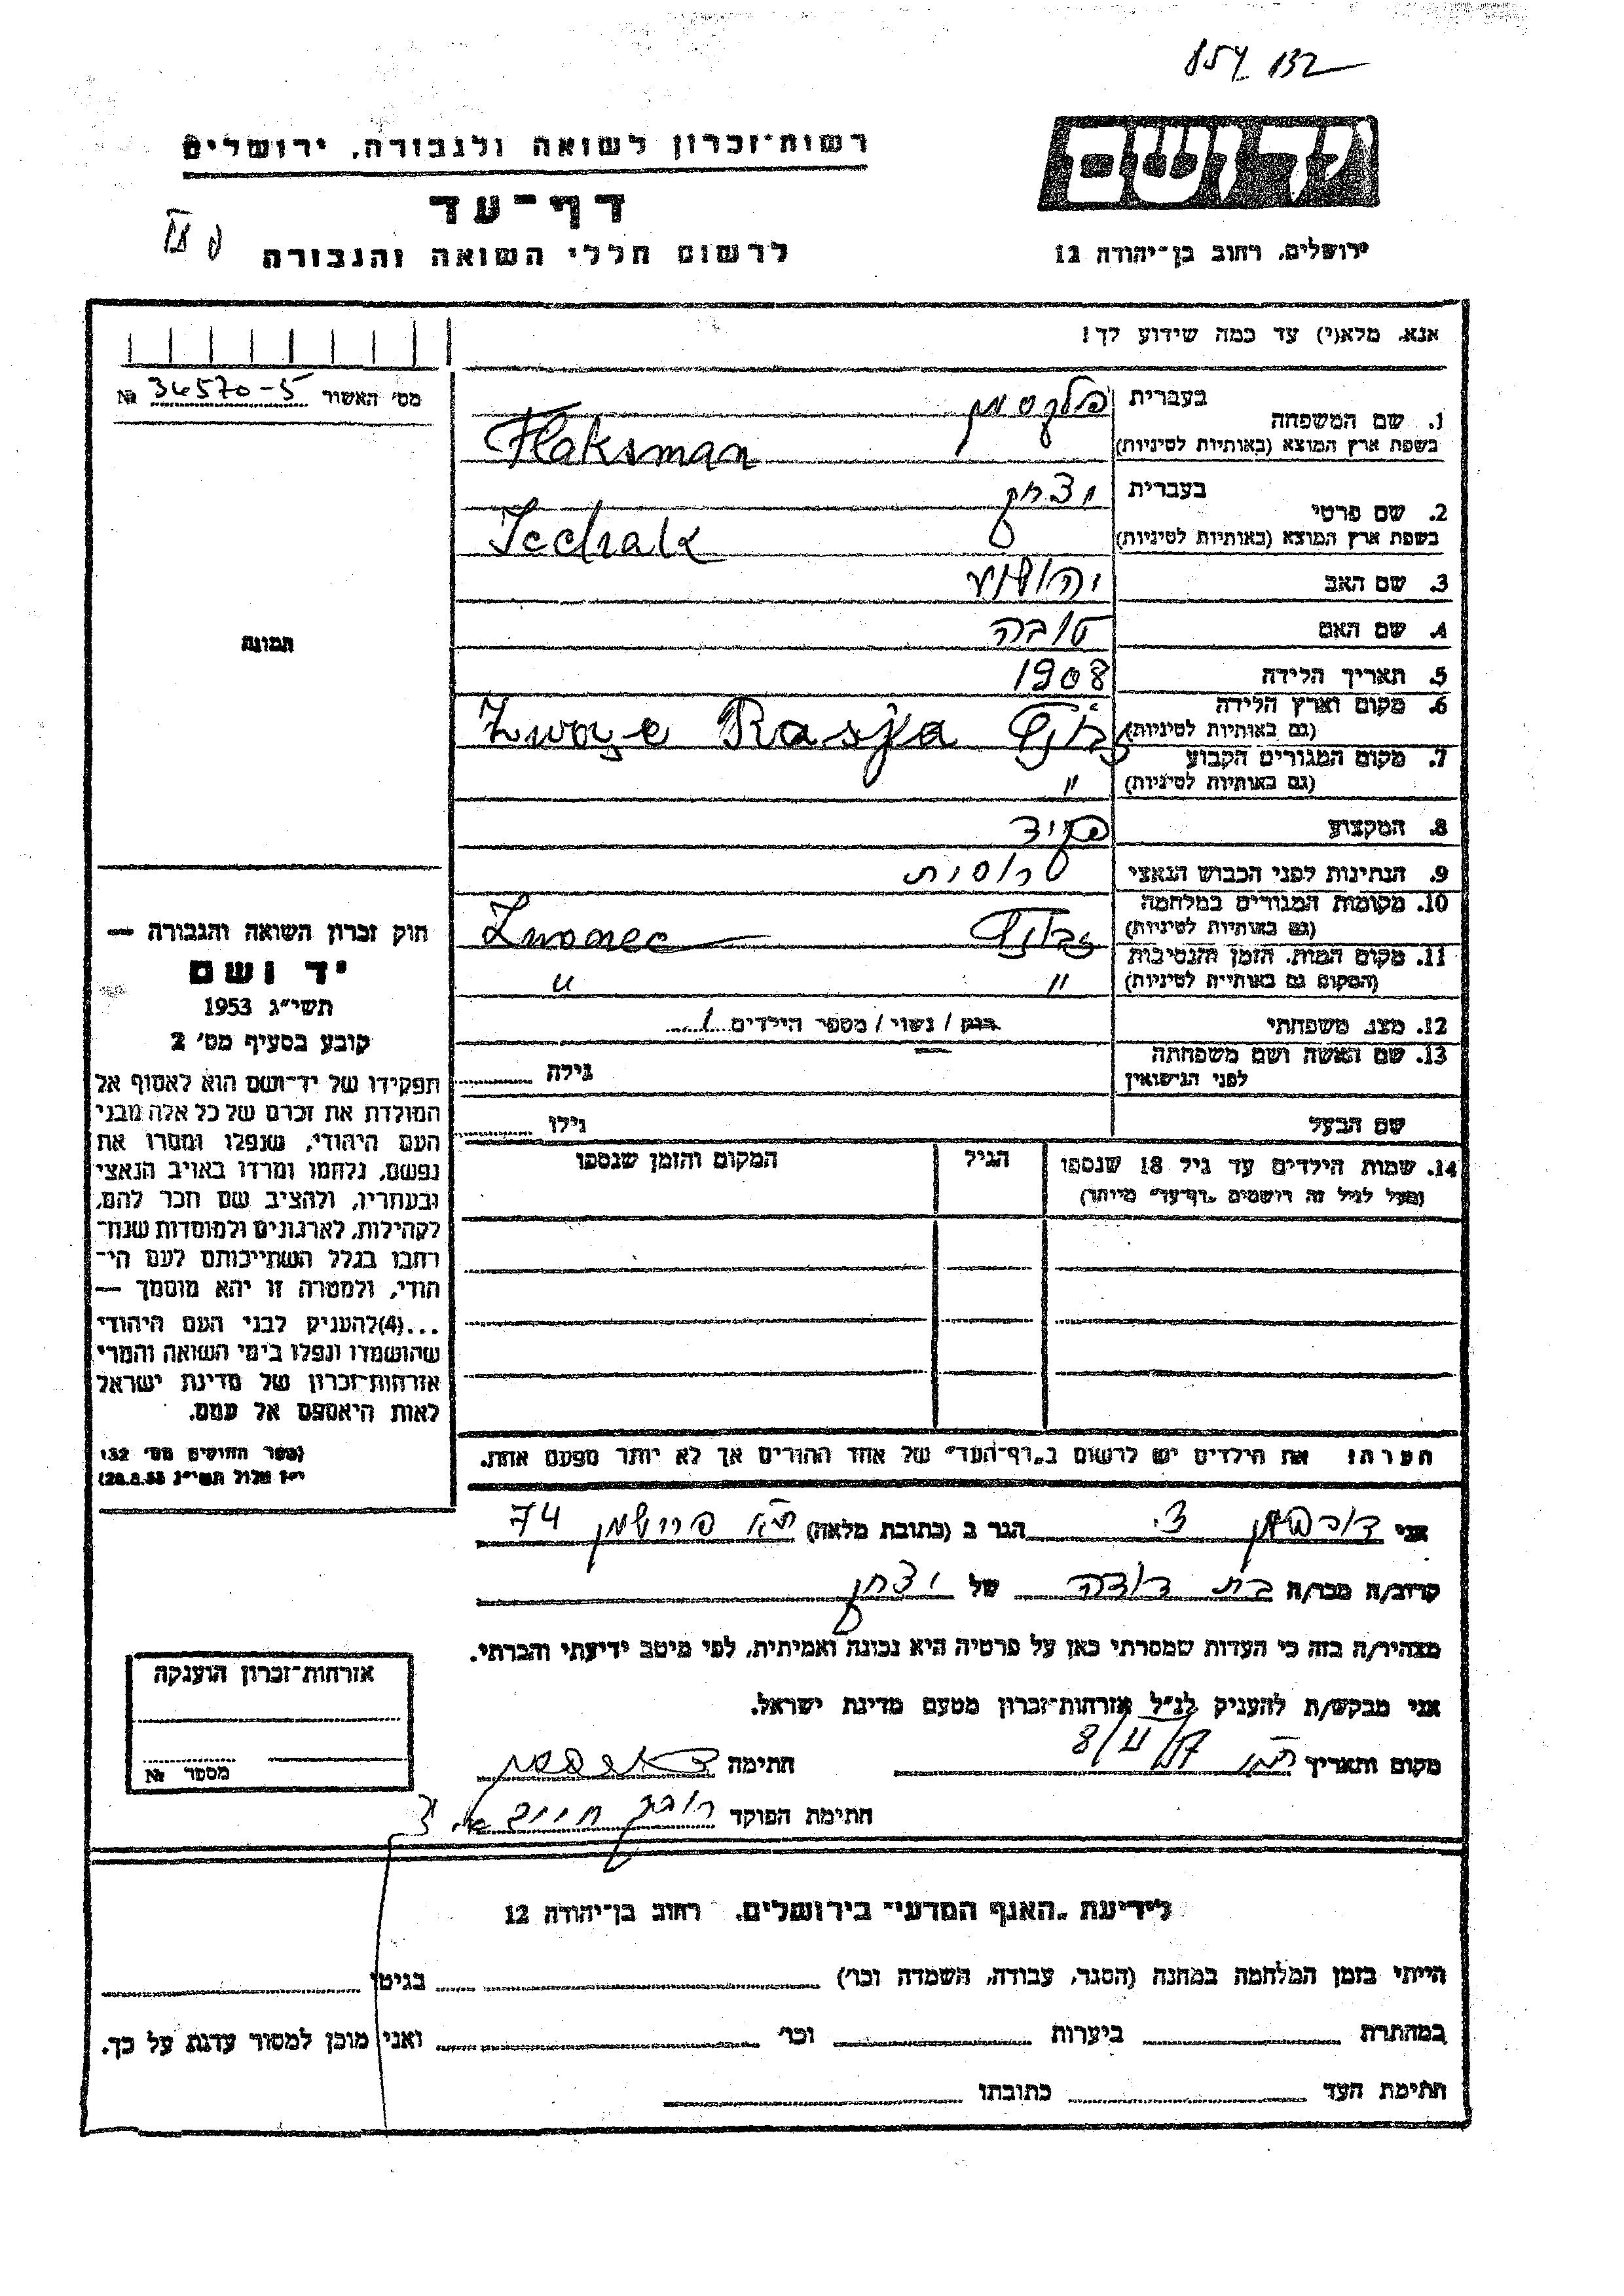 854 132
רשות־זכרון לשואה ולגבורה, ירושלים
יד ושם
דף־עד
לרשום חללי השואה והגבורה
ירושלים, רחוב בן־יהודה 12
אנא, מלא(י) עד כמה שידוע לך!
מס' האשור 34570-5 №
1. שם המשפחה בעברית פלקסמן
בשפת ארץ המוצא (באותיות לטיניות) Flaksman
2. שם פרטי בעברית יצחק
בשפת ארץ המוצא (באותיות לטיניות) Icchak
3. שם האב יהושוע
4. שם האם טובה
תמונה
5. תאריך הלידה 1908
6. מקום וארץ הלידה
(גם באותיות לטיניות) Rasja
7. מקום המגורים הקבוע
(גם באותיות לטיניות) "
8. המקצוע פקיד
9. הנתינות לפני הכבוש הנאצי
10. מקומות המגורים במלחמה
(גם באותיות לטיניות) Zwonec
11. מקום המות, הזמן והנסיבות
(המקום גם באותיות לטיניות) " "
12. מצב משפחתי רווק / נשוי / מספר הילדים 1
13. שם האשה ושם משפחתה
לפני הנישואין גילה
שם הבעל גילו
14. שמות הילדים עד גיל 18 שנספו הגיל המקום והזמן שנספו
(מעל לגיל זה רושמים "דף־עד" מיוחד)
חוק זכרון השואה והגבורה —
יד ושם
תשי"ג 1953
קובע בסעיף מס' 2
תפקידו של יד־ושם הוא לאסוף אל
המולדת את זכרם של כל אלה מבני
העם היהודי, שנפלו ומסרו את
נפשם, נלחמו ומרדו באויב הנאצי
ובעוזריו, ולהציב שם וזכר להם,
לקהילות, לארגונים ולמוסדות שנח־
רבו בגלל השתייכותם לעם הי־
הודי, ולמטרה זו יהא מוסמך —
...(4)להעניק לבני העם היהודי
שהושמדו ונפלו בימי השואה והמרי
אזרחות־זכרון של מדינת ישראל
לאות היאספם אל עמם.
(ספר החוקים מס' 132
י"ז אלול תשי"ג 28.8.53)
הערה: את הילדים יש לרשום ב"דף־העד" של אחד ההורים אך לא יותר מפעם אחת.
אני הגר ב (כתובת מלאה) ת"א 74
קרוב/ה מכר/ה בת דודה של יצחק
מצהיר/ה בזה כי העדות שמסרתי כאן על פרטיה היא נכונה ואמיתית, לפי מיטב ידיעתי והכרתי.
אני מבקש/ת להעניק לנ"ל אזרחות־זכרון מטעם מדינת ישראל.
מקום ותאריך 8/ חתימה
חתימת הפוקד
אזרחות־זכרון הוענקה
מספר №
לידיעת "האגף המדעי" בירושלים, רחוב בן־יהודה 12
הייתי בזמן המלחמה במחנה (הסגר, עבודה, השמדה וכו') בגיטו
במחתרת ביערות וכו' ואני מוכן למסור עדות על כך.
חתימת העד כתובתו